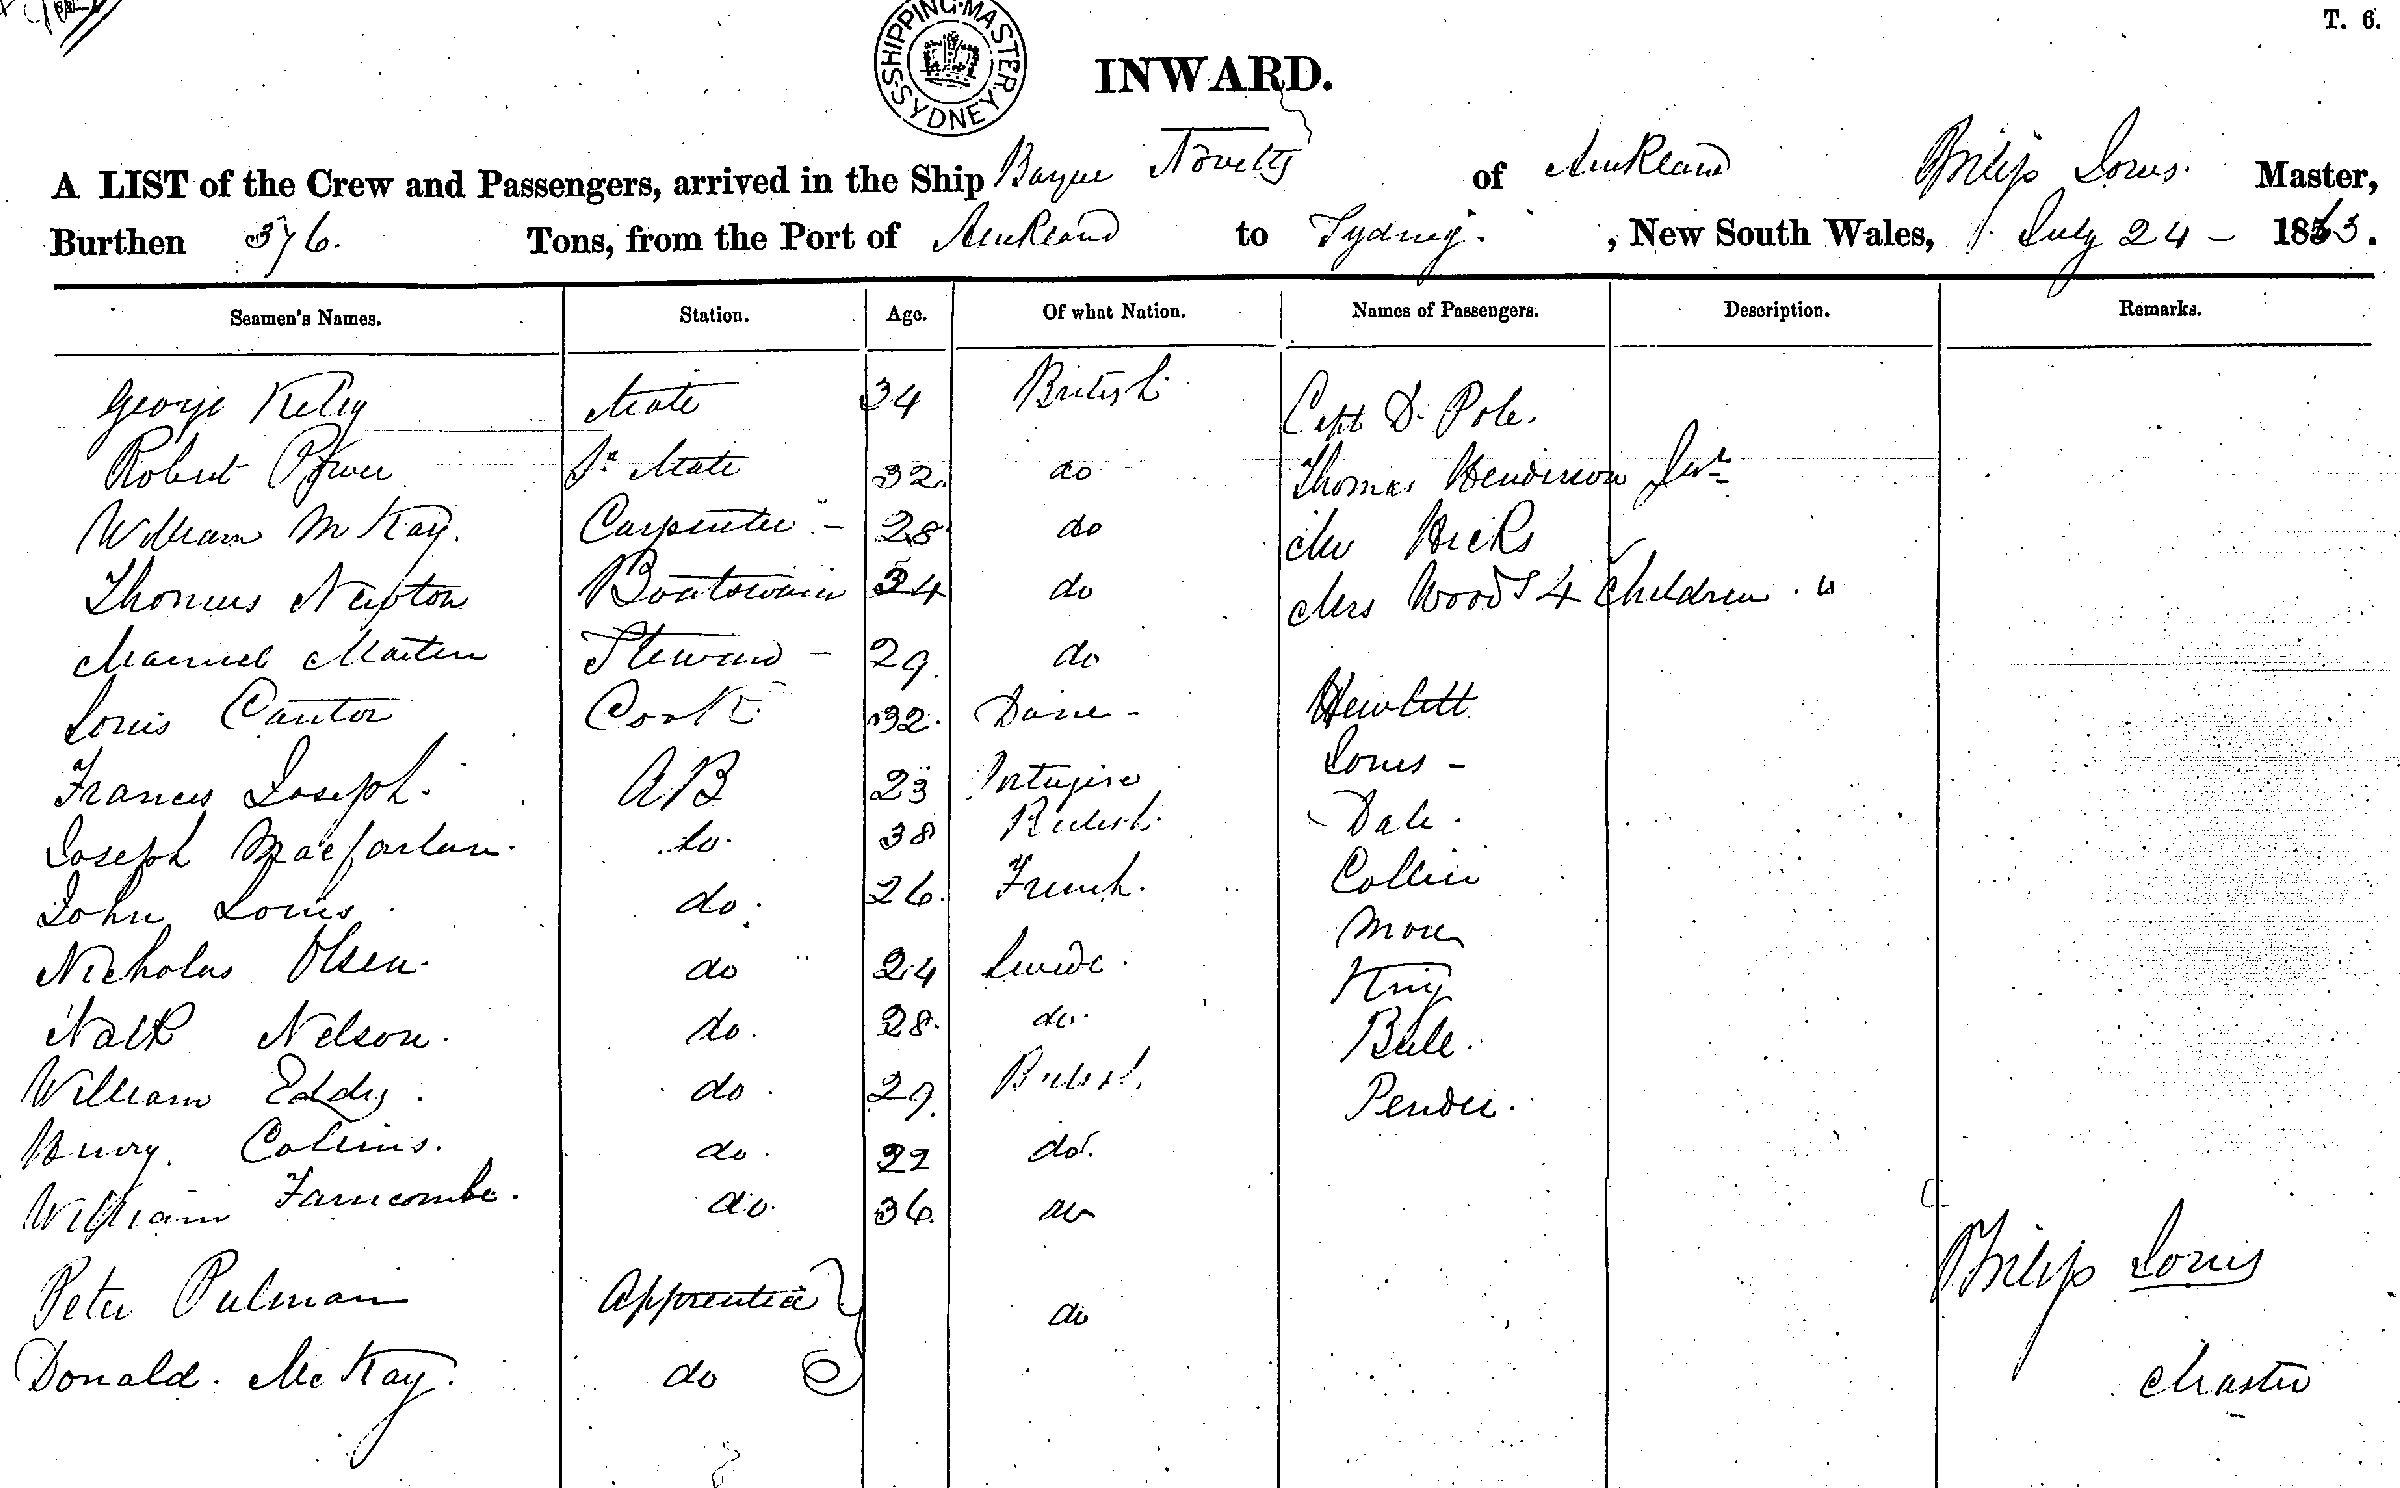 T. 6.
SHIPPING MASTER SYDNEY
INWARD.
A LIST of the Crew and Passengers, arrived in the Ship Barque Novelty of Auckland Philip Louis. Master,
Burthen 376. Tons, from the Port of Auckland to Sydney. , New South Wales, July 24 - 1863.
Seamen's Names. Station. Age. Of what Nation. Names of Passengers. Description. Remarks.
George Kelly Mate 34 British Capt D. Pole.
Robert Power Mate 32. do Thomas Henderson Junr
William McKay. Carpenter - 28 do Mr Hicks
Thomas Newton Boatswain 34 do Mrs Wood & 4 Children
Manuel Martin Steward - 29. do
Louis Cantor Cook 32. Dane - Hewlett
Francis Joseph. AB 23 Portugise Louis -
Joseph Macfarlan. do. 38 British Dale.
John Louis. do. 26. French. Collin
Nicholas Olsen. do 24 Swede. More
Nelson. do. 28. do. King
William Eddy. do. 29. British Bale.
Henry. Collins. do. 22 do. Pender.
William Farncombe. do. 36. do
Peter Pulman Apprentice do
Donald. McKay. do
Philip Louis
Master